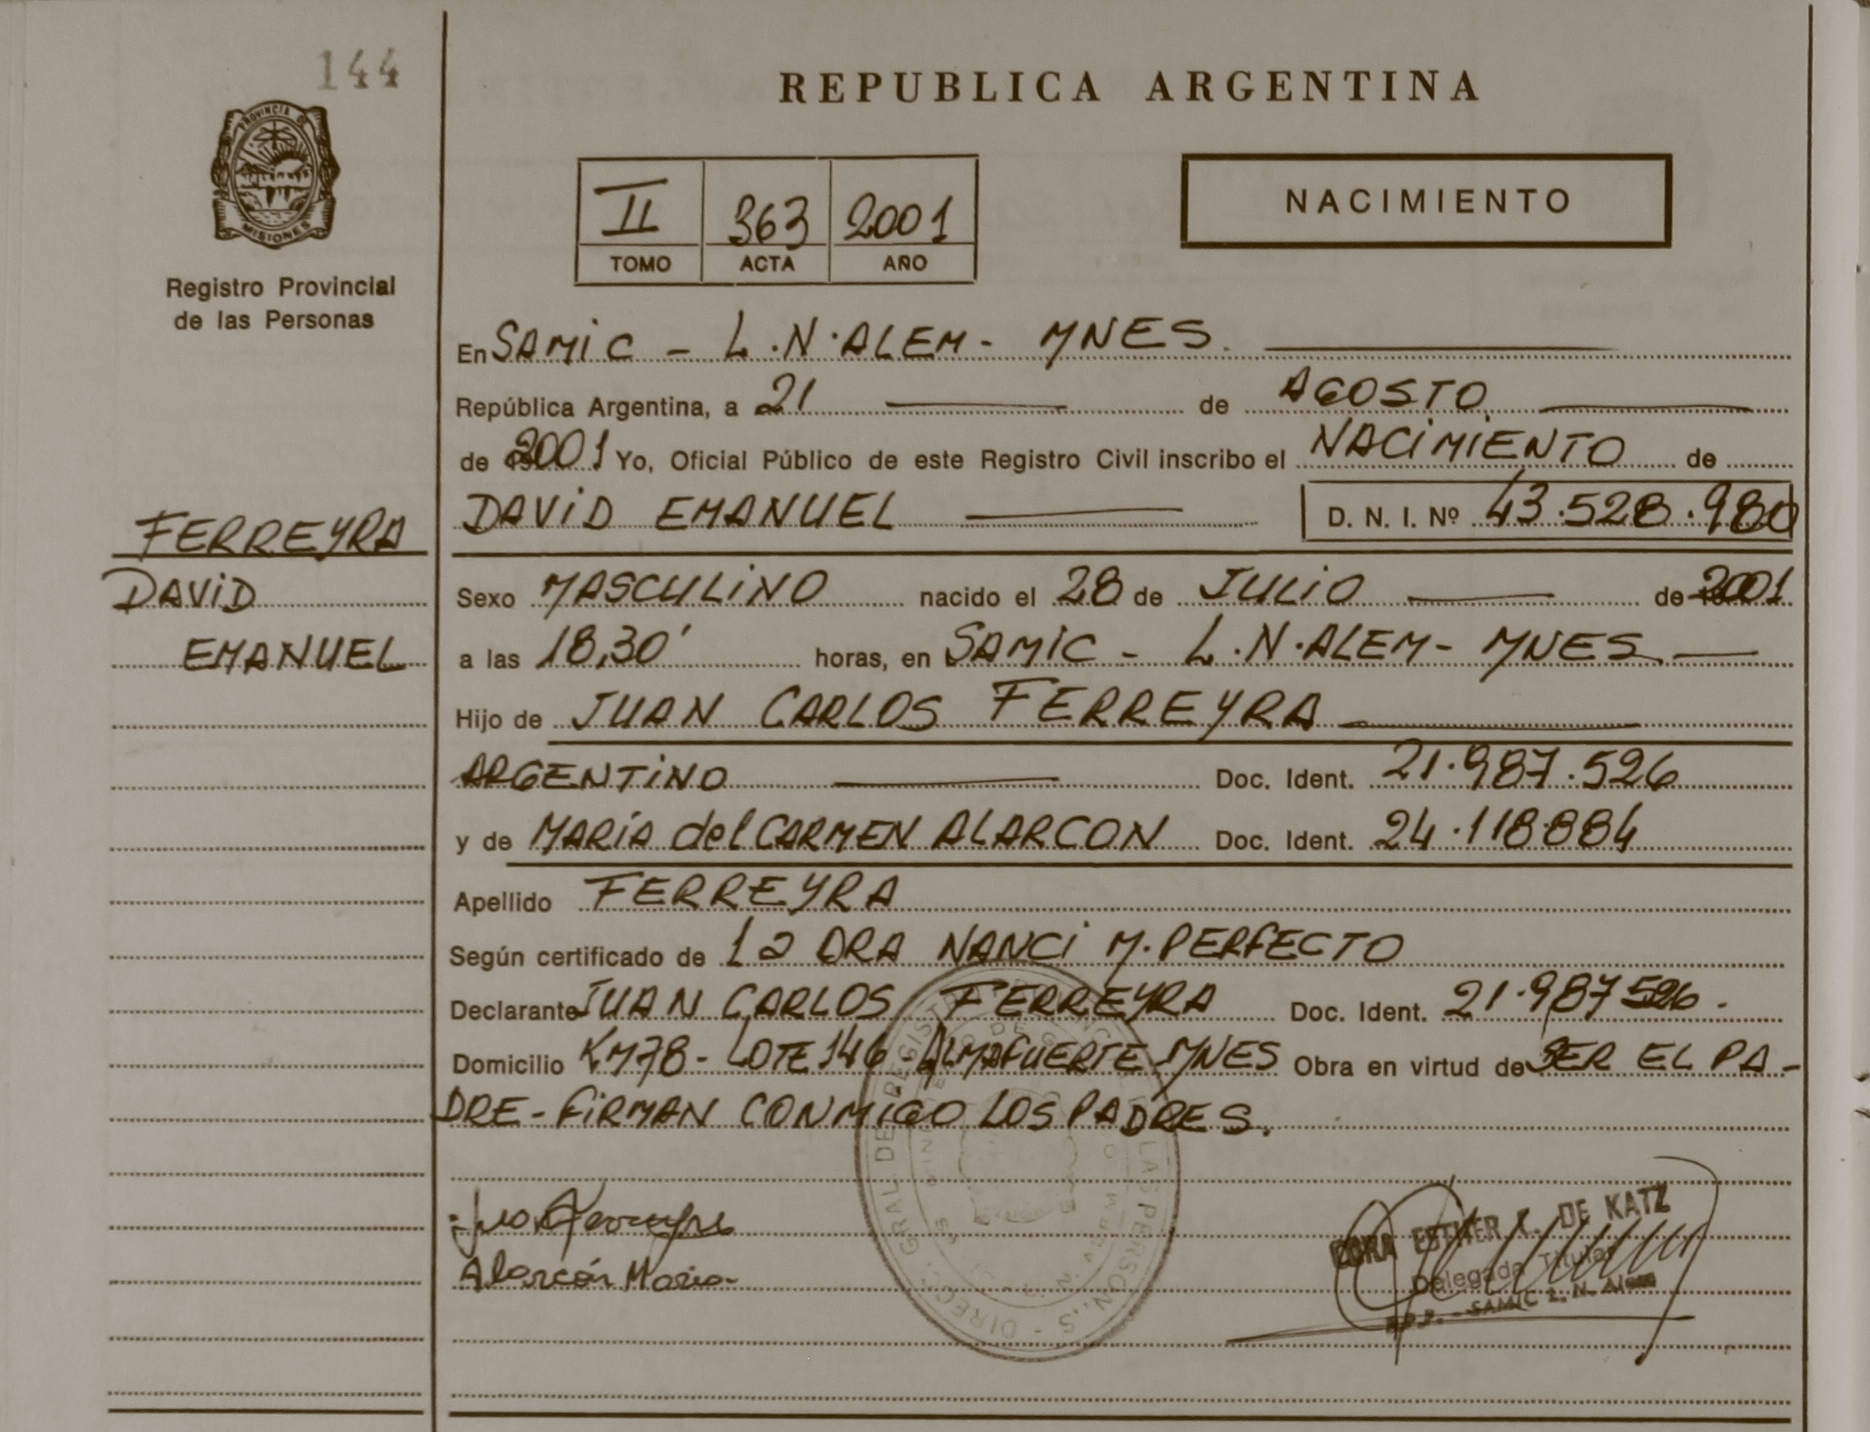 144
REPUBLICA ARGENTINA
PROVINCIA DE
MISIONES
Registro Provincial
de las Personas
II 363 2001
TOMO ACTA AÑO
NACIMIENTO
En SAMIC - L.N.ALEM - MNES.
República Argentina, a 21 de AGOSTO
de 2001 Yo, Oficial Público de este Registro Civil inscribo el NACIMIENTO de
DAVID EMANUEL D. N. I. Nº 43.528.980
FERREYRA
DAVID
EMANUEL
Sexo MASCULINO nacido el 28 de JULIO de 2001
a las 18,30' horas, en SAMIC - L.N.ALEM - MNES.
Hijo de JUAN CARLOS FERREYRA
ARGENTINO Doc. Ident. 21.987.526
y de MARÍA del CARMEN ALARCON Doc. Ident. 24.118.884
Apellido FERREYRA
Según certificado de la DRA NANCI M. PERFECTO
Declarante JUAN CARLOS FERREYRA Doc. Ident. 21.987526.
Domicilio KM78 - LOTE 146 ALMAFUERTE MNES Obra en virtud de SER EL PA-
DRE - FIRMAN CONMIGO LOS PADRES.
Alarcón Maria
CORA ESTHER DE KATZ
Delegada Titular
SAMIC L. N. Alem